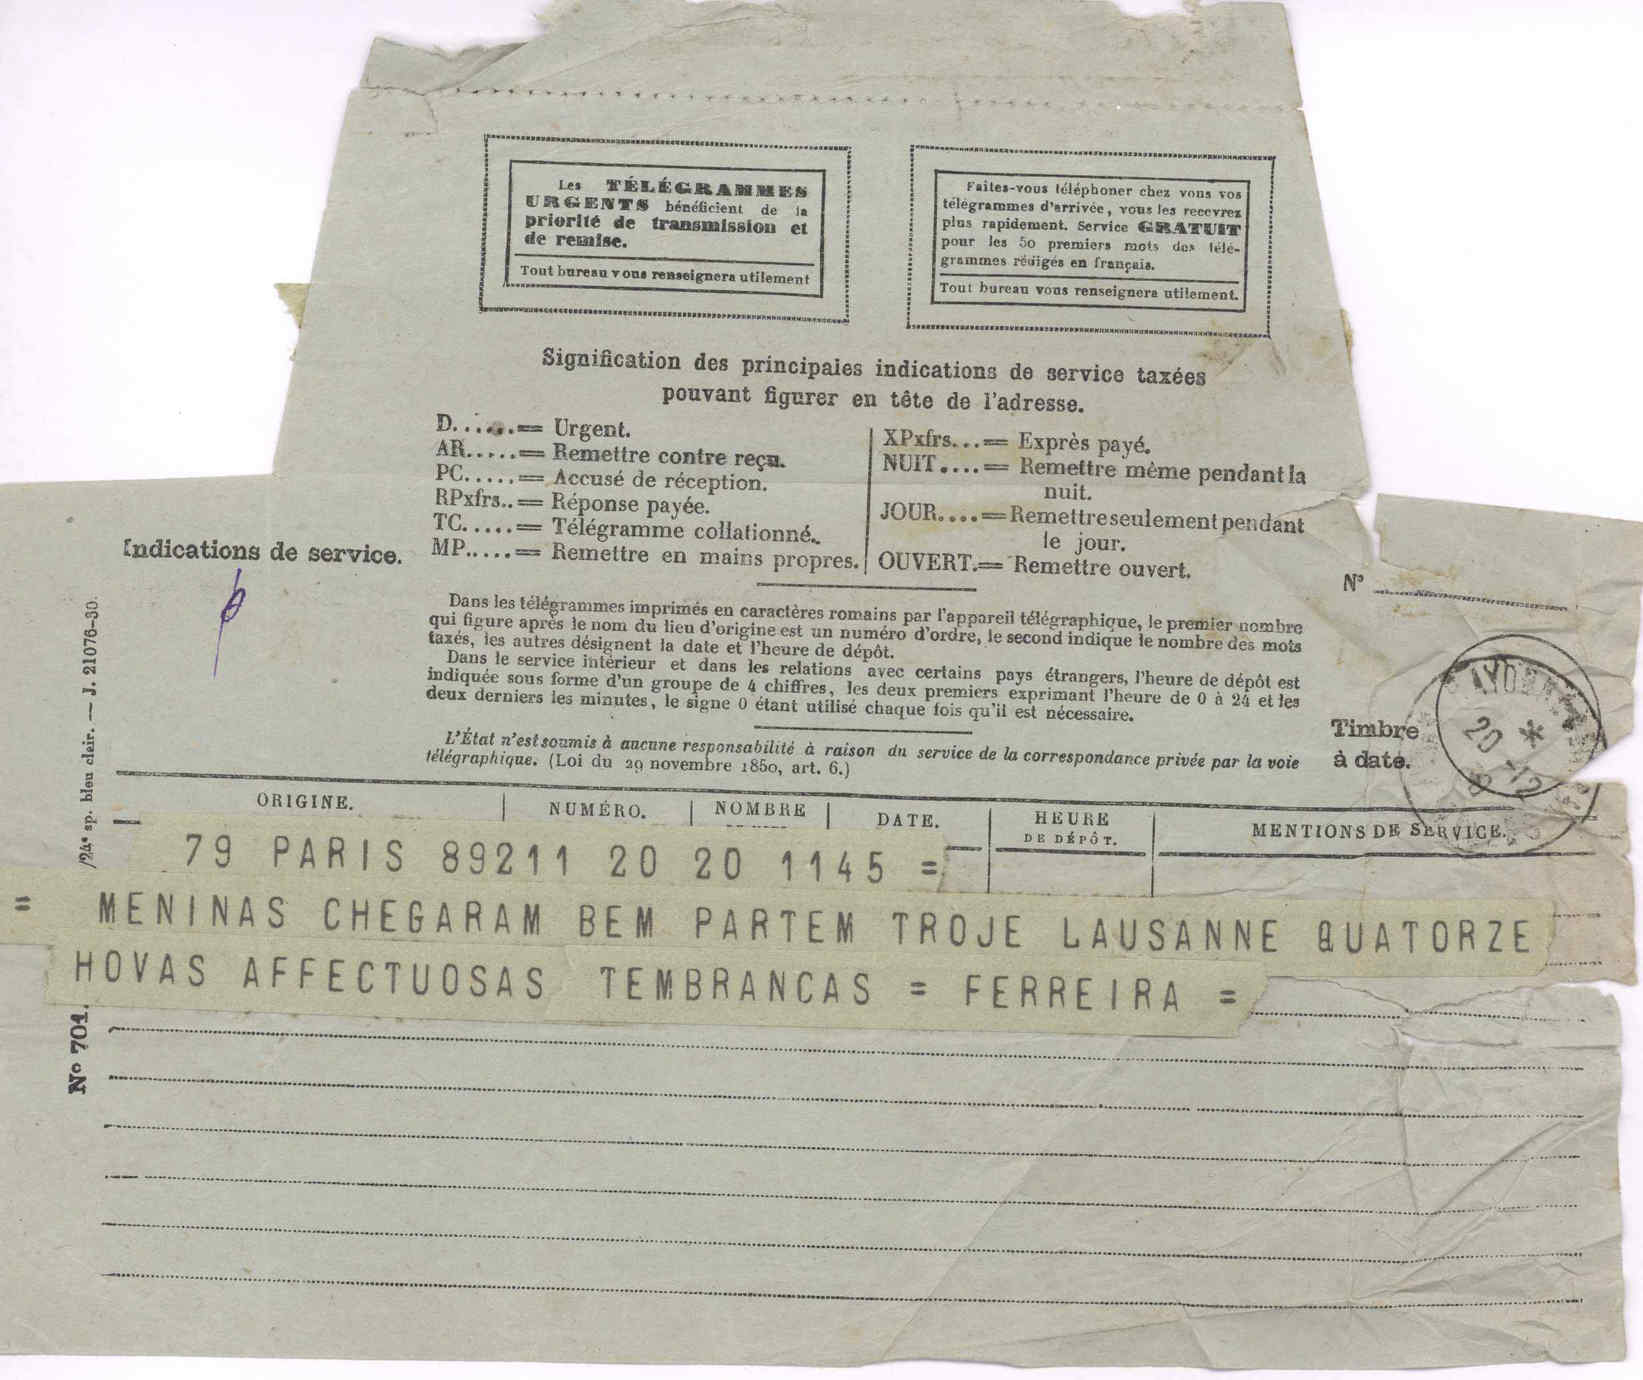 Les TÉLÉGRAMMES
URGENTS bénéficient de la
priorité de transmission et
de remise.
Tout bureau vous renseignera utilement
Faites-vous téléphoner chez vous vos
télégrammes d'arrivée, vous les recevrez
plus rapidement. Service GRATUIT
pour les 50 premiers mots des télé-
grammes rédigés en français.
Tout bureau vous renseignera utilement.
Signification des principales indications de service taxées
pouvant figurer en tête de l'adresse.
D......= Urgent.
AR.....= Remettre contre reçu.
PC.....= Accusé de réception.
RPxfrs..= Réponse payée.
TC.....= Télégramme collationné.
MP.....= Remettre en mains propres.
XPxfrs...= Exprès payé.
NUIT....= Remettre même pendant la
nuit.
JOUR....= Remettre seulement pendant
le jour.
OUVERT.= Remettre ouvert.
Indications de service.
Dans les télégrammes imprimés en caractères romains par l'appareil télégraphique, le premier nombre
qui figure après le nom du lieu d'origine est un numéro d'ordre, le second indique le nombre des mots
taxés, les autres désignent la date et l'heure de dépôt.
Dans le service intérieur et dans les relations avec certains pays étrangers, l'heure de dépôt est
indiquée sous forme d'un groupe de 4 chiffres, les deux premiers exprimant l'heure de 0 à 24 et les
deux derniers les minutes, le signe 0 étant utilisé chaque fois qu'il est nécessaire.
L'État n'est soumis à aucune responsabilité à raison du service de la correspondance privée par la voie
télégraphique. (Loi du 29 novembre 1850, art. 6.)
N°
Timbre
à date.
20 * 12
ORIGINE. NUMÉRO. NOMBRE DATE. HEURE
DE DÉPÔT. MENTIONS DE SERVICE.
79 PARIS 89211 20 20 1145 =
= MENINAS CHEGARAM BEM PARTEM TROJE LAUSANNE QUATORZE
HOVAS AFFECTUOSAS TEMBRANCAS = FERREIRA =
N° 701.
/24e sp. bleu clair. — J. 21076-30.